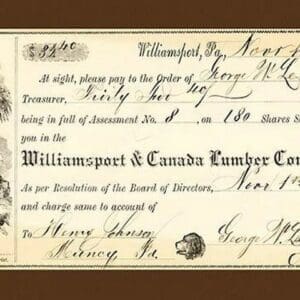 $32 40 Williamsport, Pa, Novr
At sight, please pay to the Order of George W.
Treasurer, Thirty Two 40/
being in full of Assessment No. 8, on 180 Shares S
you in the
Williamsport & Canada Lumber Co
As per Resolution of the Board of Directors, Novr 1st
and charge same to account of
To Henry Johnson George W.
Muncy, Pa.